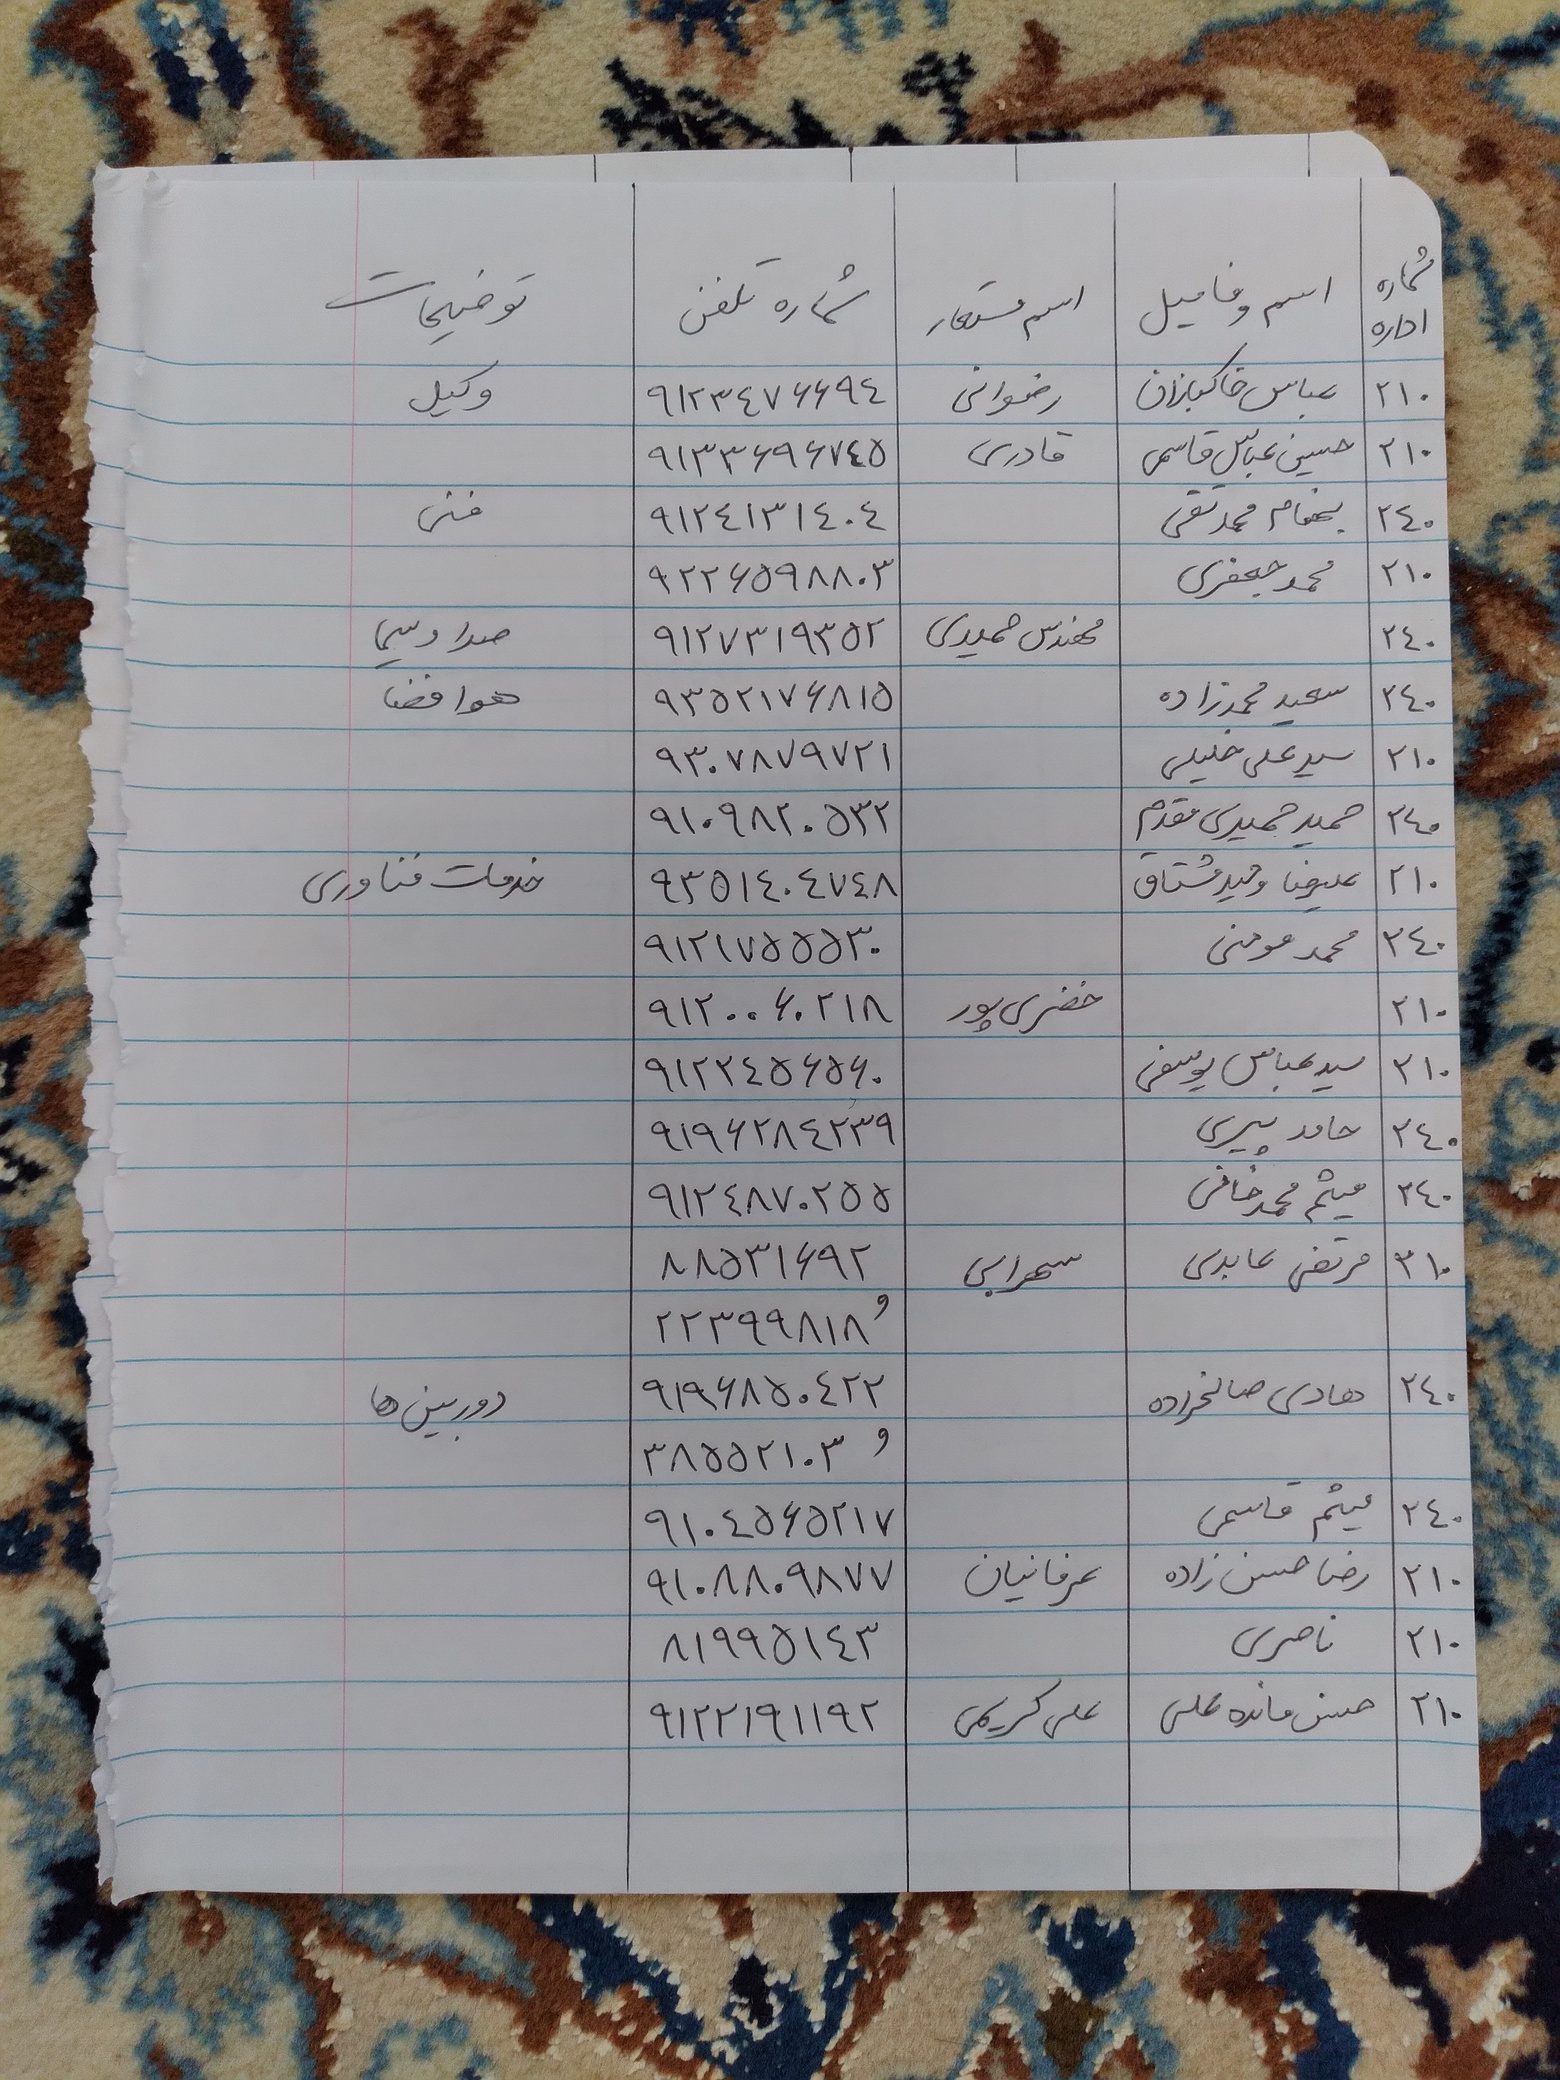 شماره اداره اسم و فامیل اسم مستعار شماره تلفن توضیحات
۲۱۰ عباس خاکبازان رضوانی ۹۱۲۳۴۷۶۶۹۴ وکیل
۲۱۰ حسین عباس قاسمی قادری ۹۱۳۳۶۹۶۷۴۵
۲۴۰ بهنام محمدتقی ۹۱۲۴۱۳۱۴۰۴ فنی
۲۱۰ محمد جعفری ۹۲۲۶۵۹۸۸۰۳
۲۴۰ مهندس حمیدی ۹۱۲۷۳۱۹۳۵۲ صدا و سیما
۲۴۰ سعید محمدزاده ۹۳۵۲۱۷۶۸۱۵ هوا فضا
۲۱۰ سید علی خلیلی ۹۳۰۷۸۷۹۷۲۱
۲۴۰ حمید حمیدی مقدم ۹۱۰۹۸۲۰۵۳۲
۲۱۰ علیرضا وحید مشتاق ۹۳۵۱۴۰۴۷۴۸ خدمات فناوری
۲۴۰ محمد مومنی ۹۱۲۱۷۵۵۵۳۰
۲۱۰ خضری پور ۹۱۲۰۰۶۰۲۱۸
۲۱۰ سید عباس یوسفی ۹۱۲۲۴۵۶۵۶۰
۲۴۰ حامد پیری ۹۱۹۶۲۸۴۲۳۹
۲۴۰ میثم محمدخانی ۹۱۲۴۸۷۰۲۵۵
۲۱۰ مرتضی عابدی سهرابی ۸۸۵۳۱۶۹۲
و ۲۲۳۹۹۸۱۸
۲۴۰ هادی صالحزاده ۹۱۹۶۸۵۰۴۲۲ دوربین ها
و ۳۸۵۵۲۱۰۳
۲۴۰ میثم قاسمی ۹۱۰۴۵۶۵۲۱۷
۲۱۰ رضا حسن زاده عرفانیان ۹۱۰۸۸۰۹۸۷۷
۲۱۰ ناصری ۸۱۹۹۵۱۴۳
۲۱۰ حسن مانده علی علی کریمی ۹۱۲۲۱۹۱۱۹۲